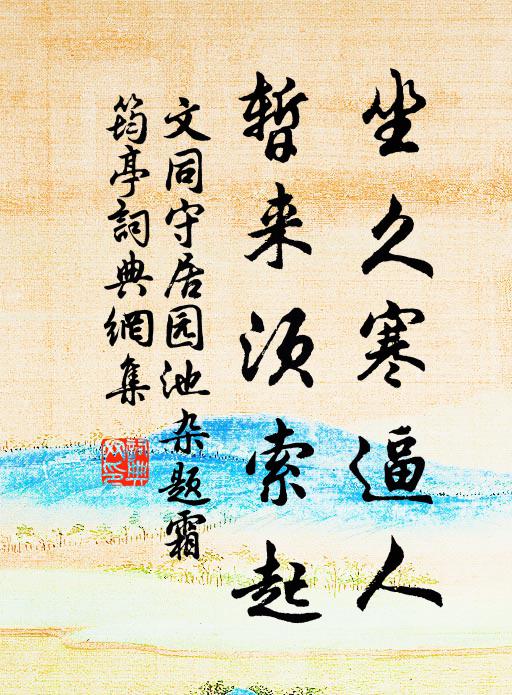 坐久寒逼人
暂来须索起
文同守居园池杂题霜
筠亭詞典網集